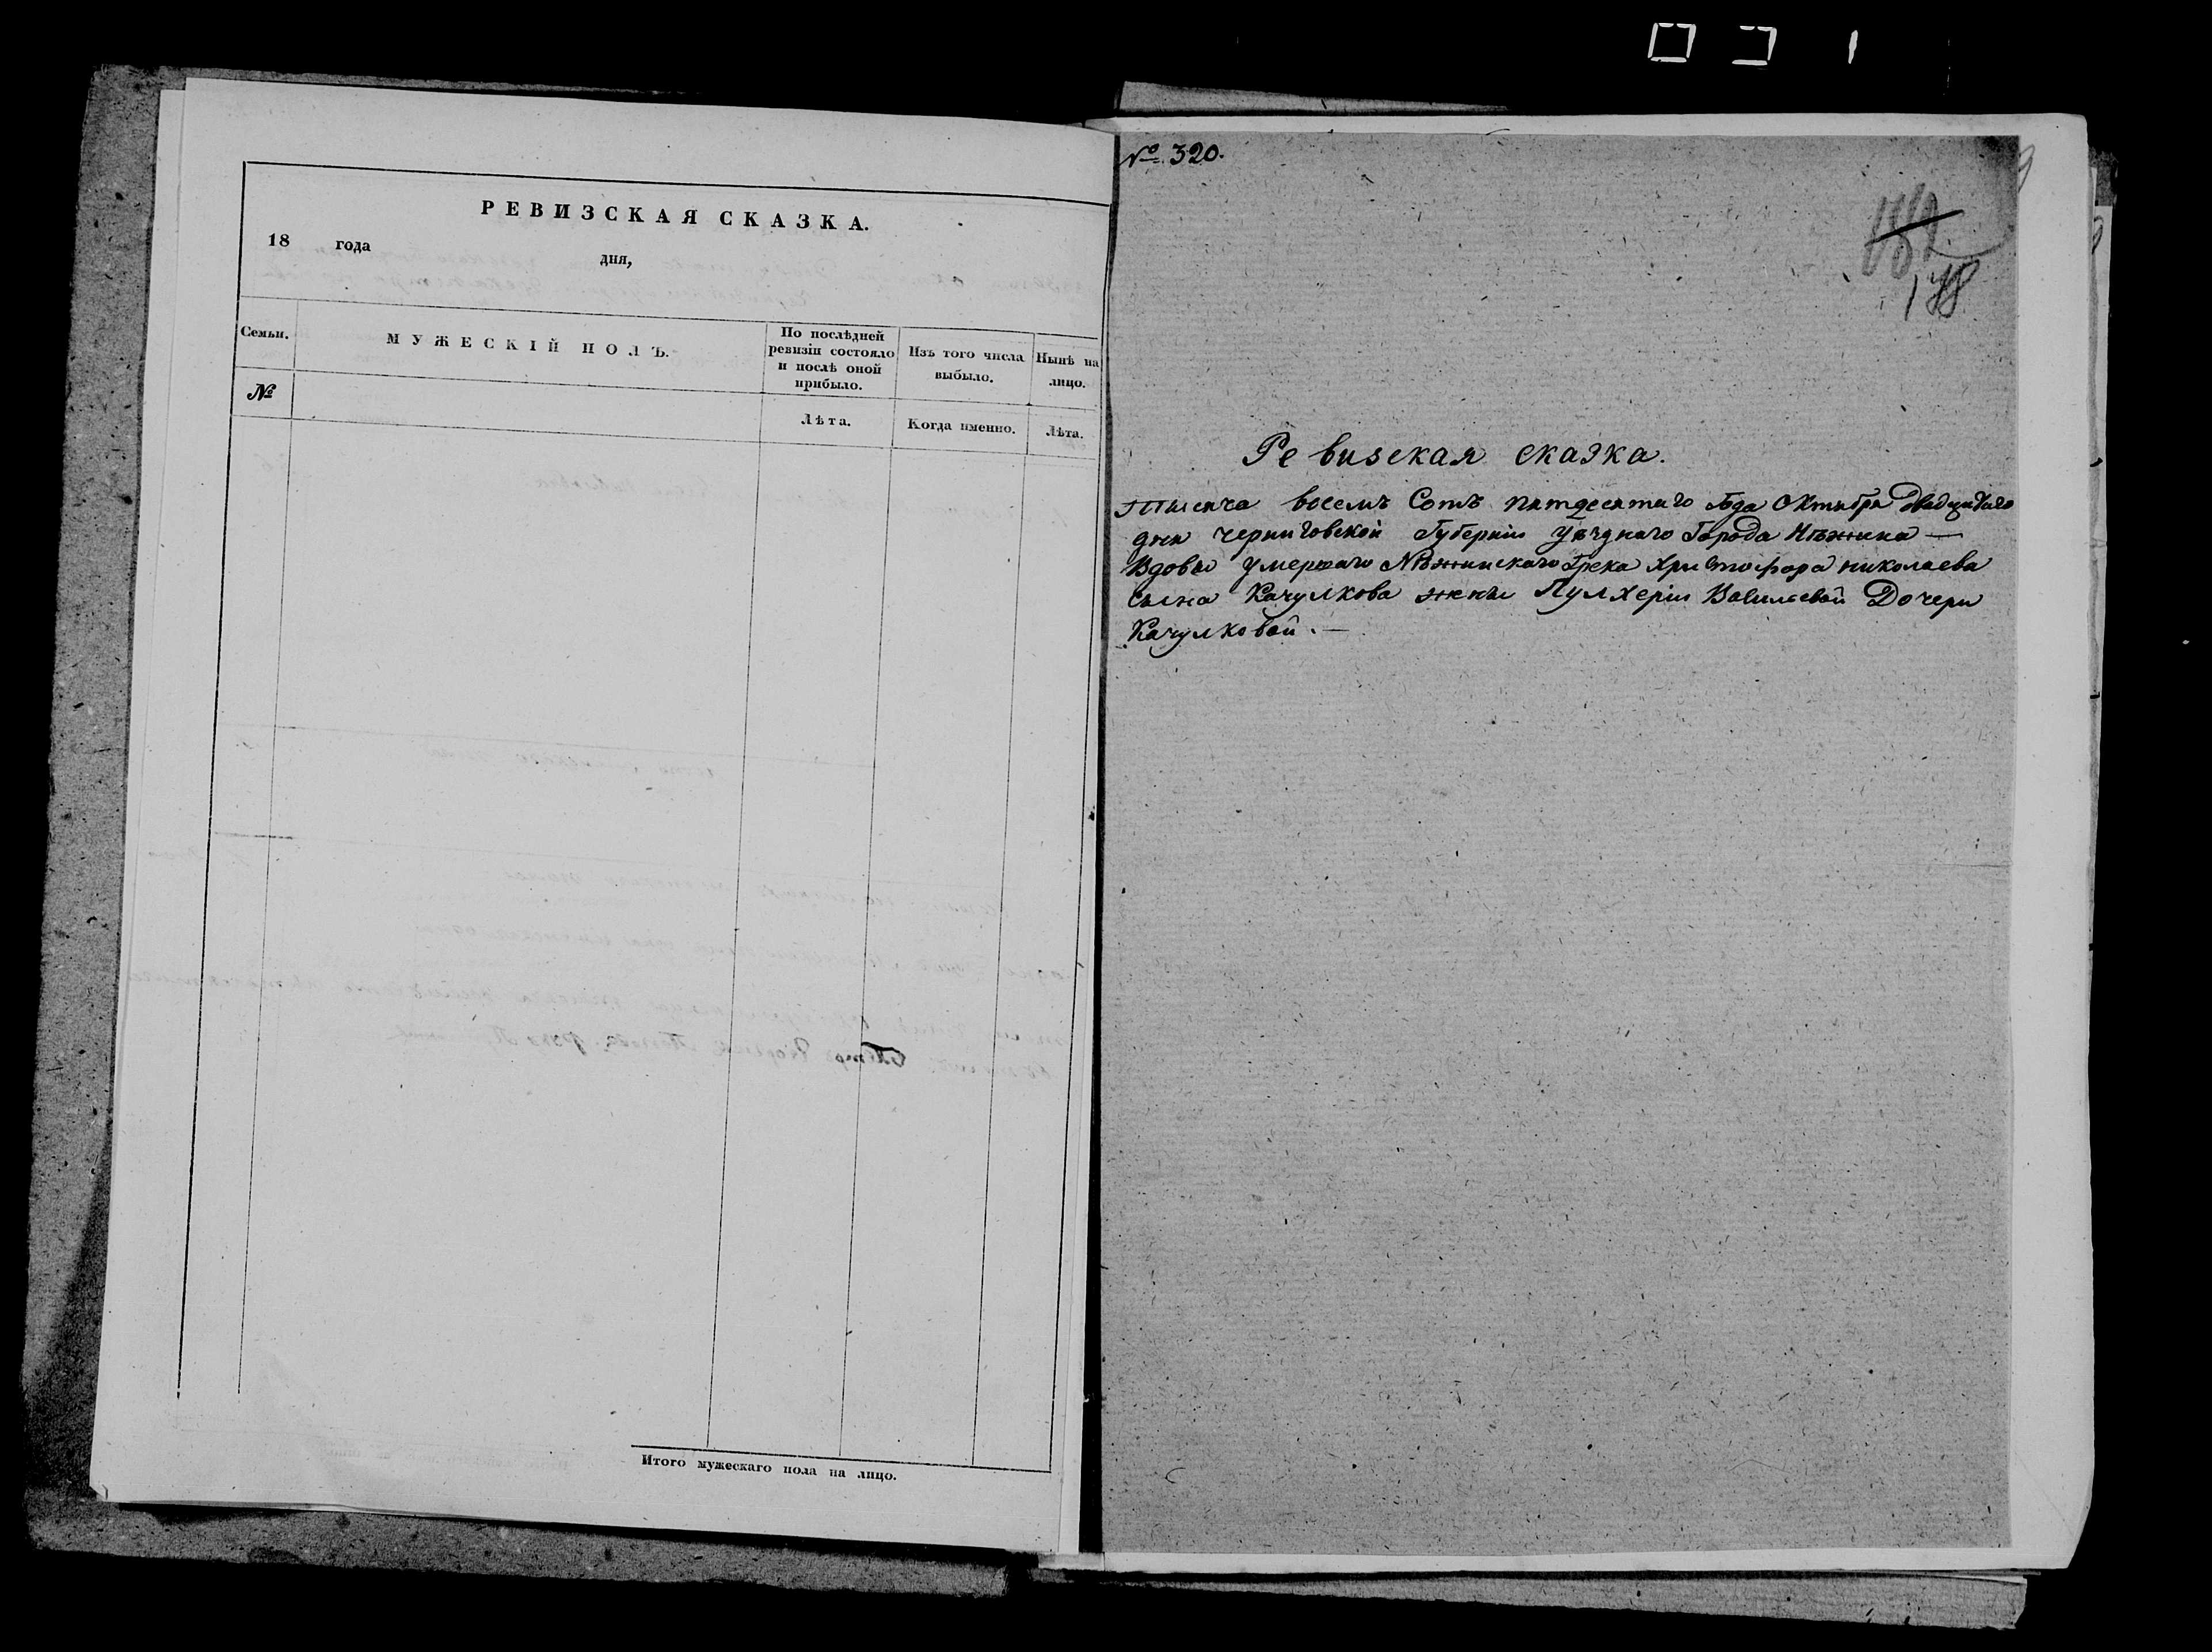 РЕВИЗСКАЯ СКАЗКА.
18 года
дня,
Семьи.
МУЖЕСКІЙ ПОЛЪ.
По послѣдней ревизіи состояло и послѣ оной прибыло.
Изъ того числа выбыло.
Нынѣ на лицо.
№
Лѣта.
Когда именно.
Лѣта.
Итого мужескаго пола на лицо.
№ 320.
178
Ревизская сказка.
Тысяча восемъ Сотъ пятдесятаго Года Октября Двадцатаго
дня Черниговской Губерніи Уѣзднаго Города Нѣжина —
Вдовы умершаго Нѣжинскаго Грека Христофора николаева
сына Качулкова жены Пулхеріи Васильевой Дочери
Качулковой. —